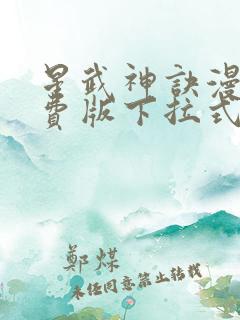 星武神訣漫
費版下拉式
鄭媒
未经同意禁止转载